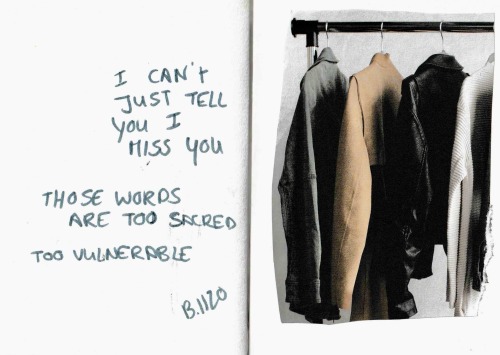 I CAN'T
JUST TELL
YOU I
MISS YOU
THOSE WORDS
ARE TOO SACRED
TOO VULNERABLE
B.1120